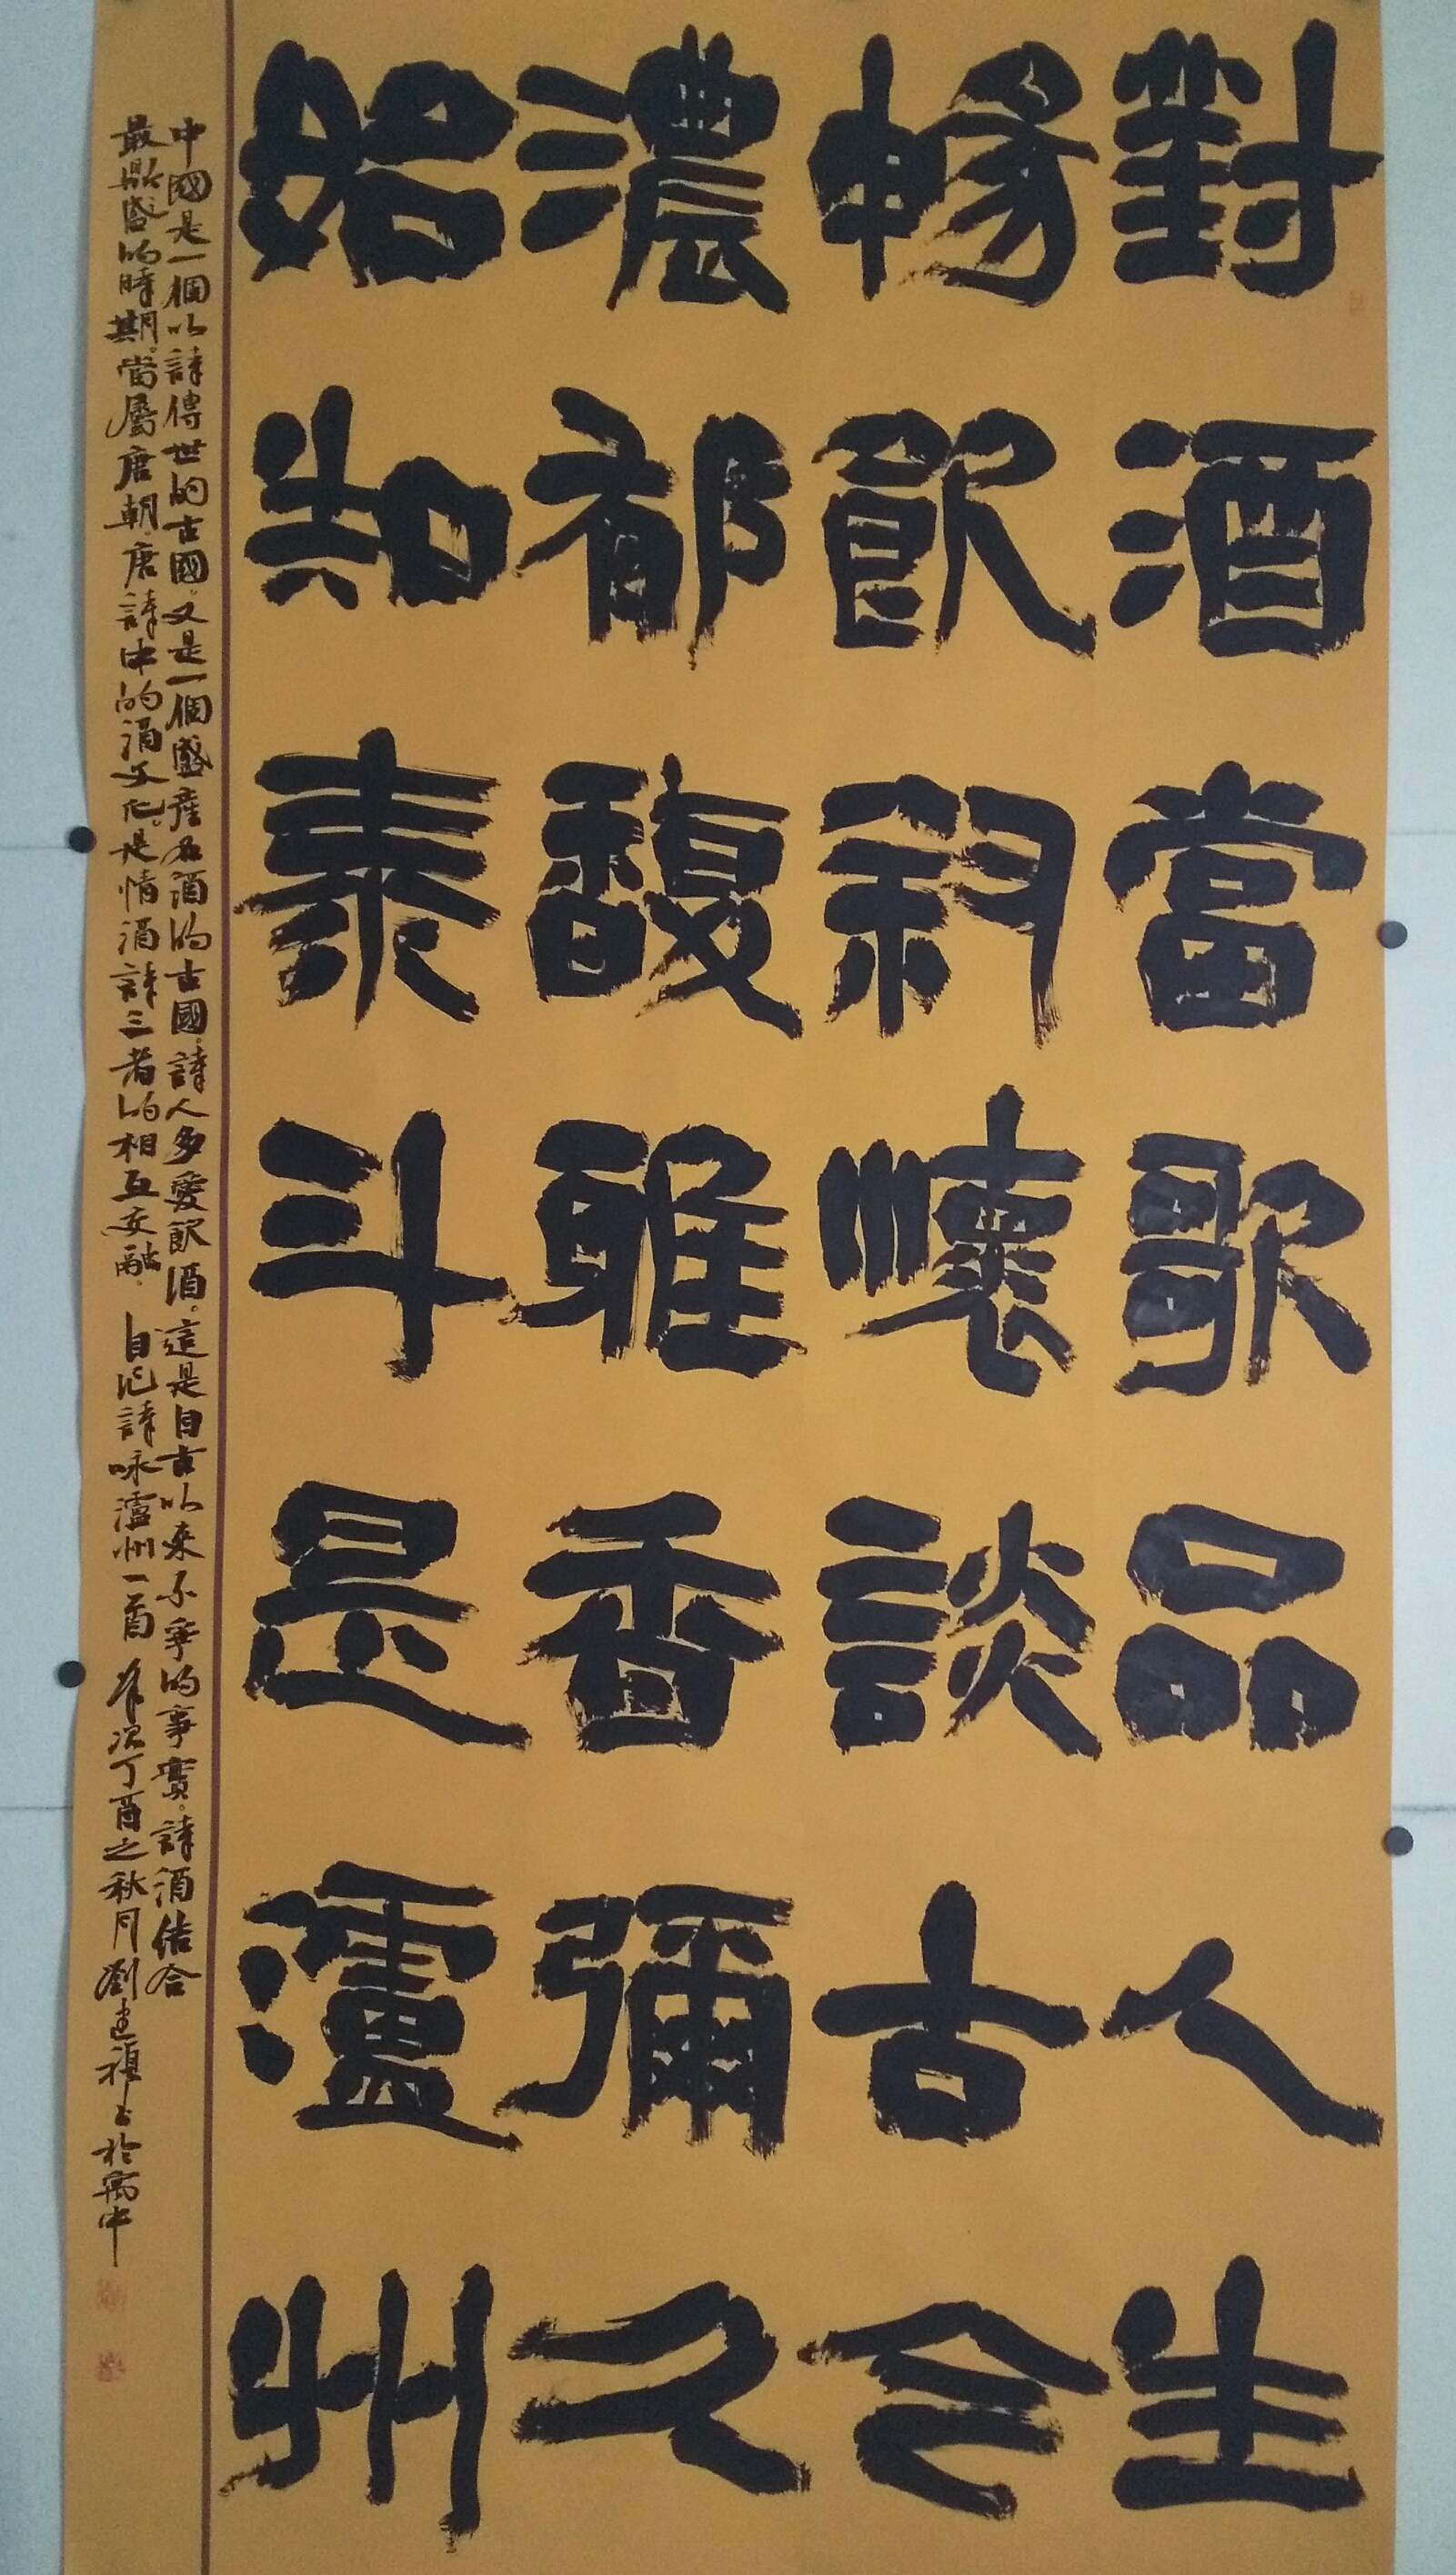 對酒當歌品人生
暢飲敘懷談古今
濃郁馥雅香彌久
始知泰斗是瀘州
中國是一個以詩傳世的古國。又是一個盛產名酒的古國。詩人多愛飲酒。這是自古以来不爭的事實。詩酒結合
最鼎盛的時期。當屬唐朝。唐詩中的酒文化。是情酒詩三者的相互交融。自作詩咏瀘州一首 歲次丁酉之秋月劉建 書於寓中